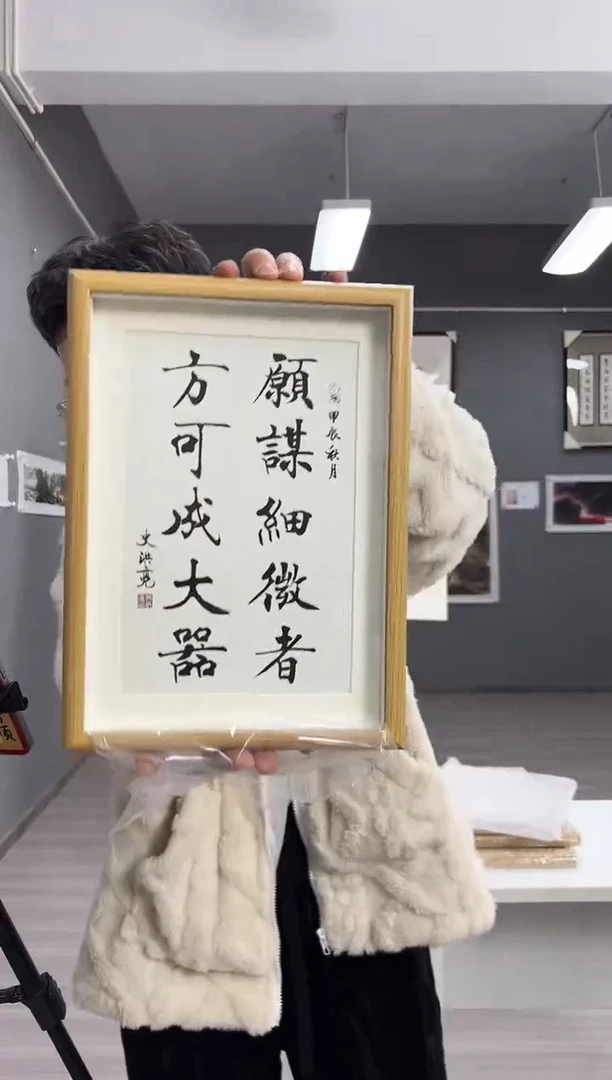 甲辰秋月
願謀細微者
方可成大器
史洪堯